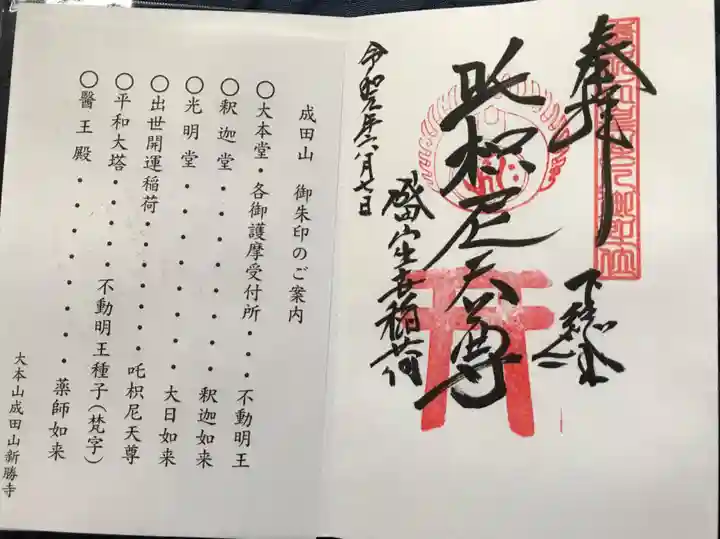 奉拝
下総国
吒枳尼天尊
成田山出世稲荷
令和元年八月七日
成田山 御朱印のご案内
〇大本堂・各御護摩受付所・・・不動明王
〇釈迦堂・・・・・・・・・・釈迦如来
〇光明堂・・・・・・・・・・大日如来
〇出世開運稲荷・・・・・・・吒枳尼天尊
〇平和大塔・・・・不動明王種子(梵字)
〇醫王殿・・・・・・・・・・薬師如来
大本山成田山新勝寺